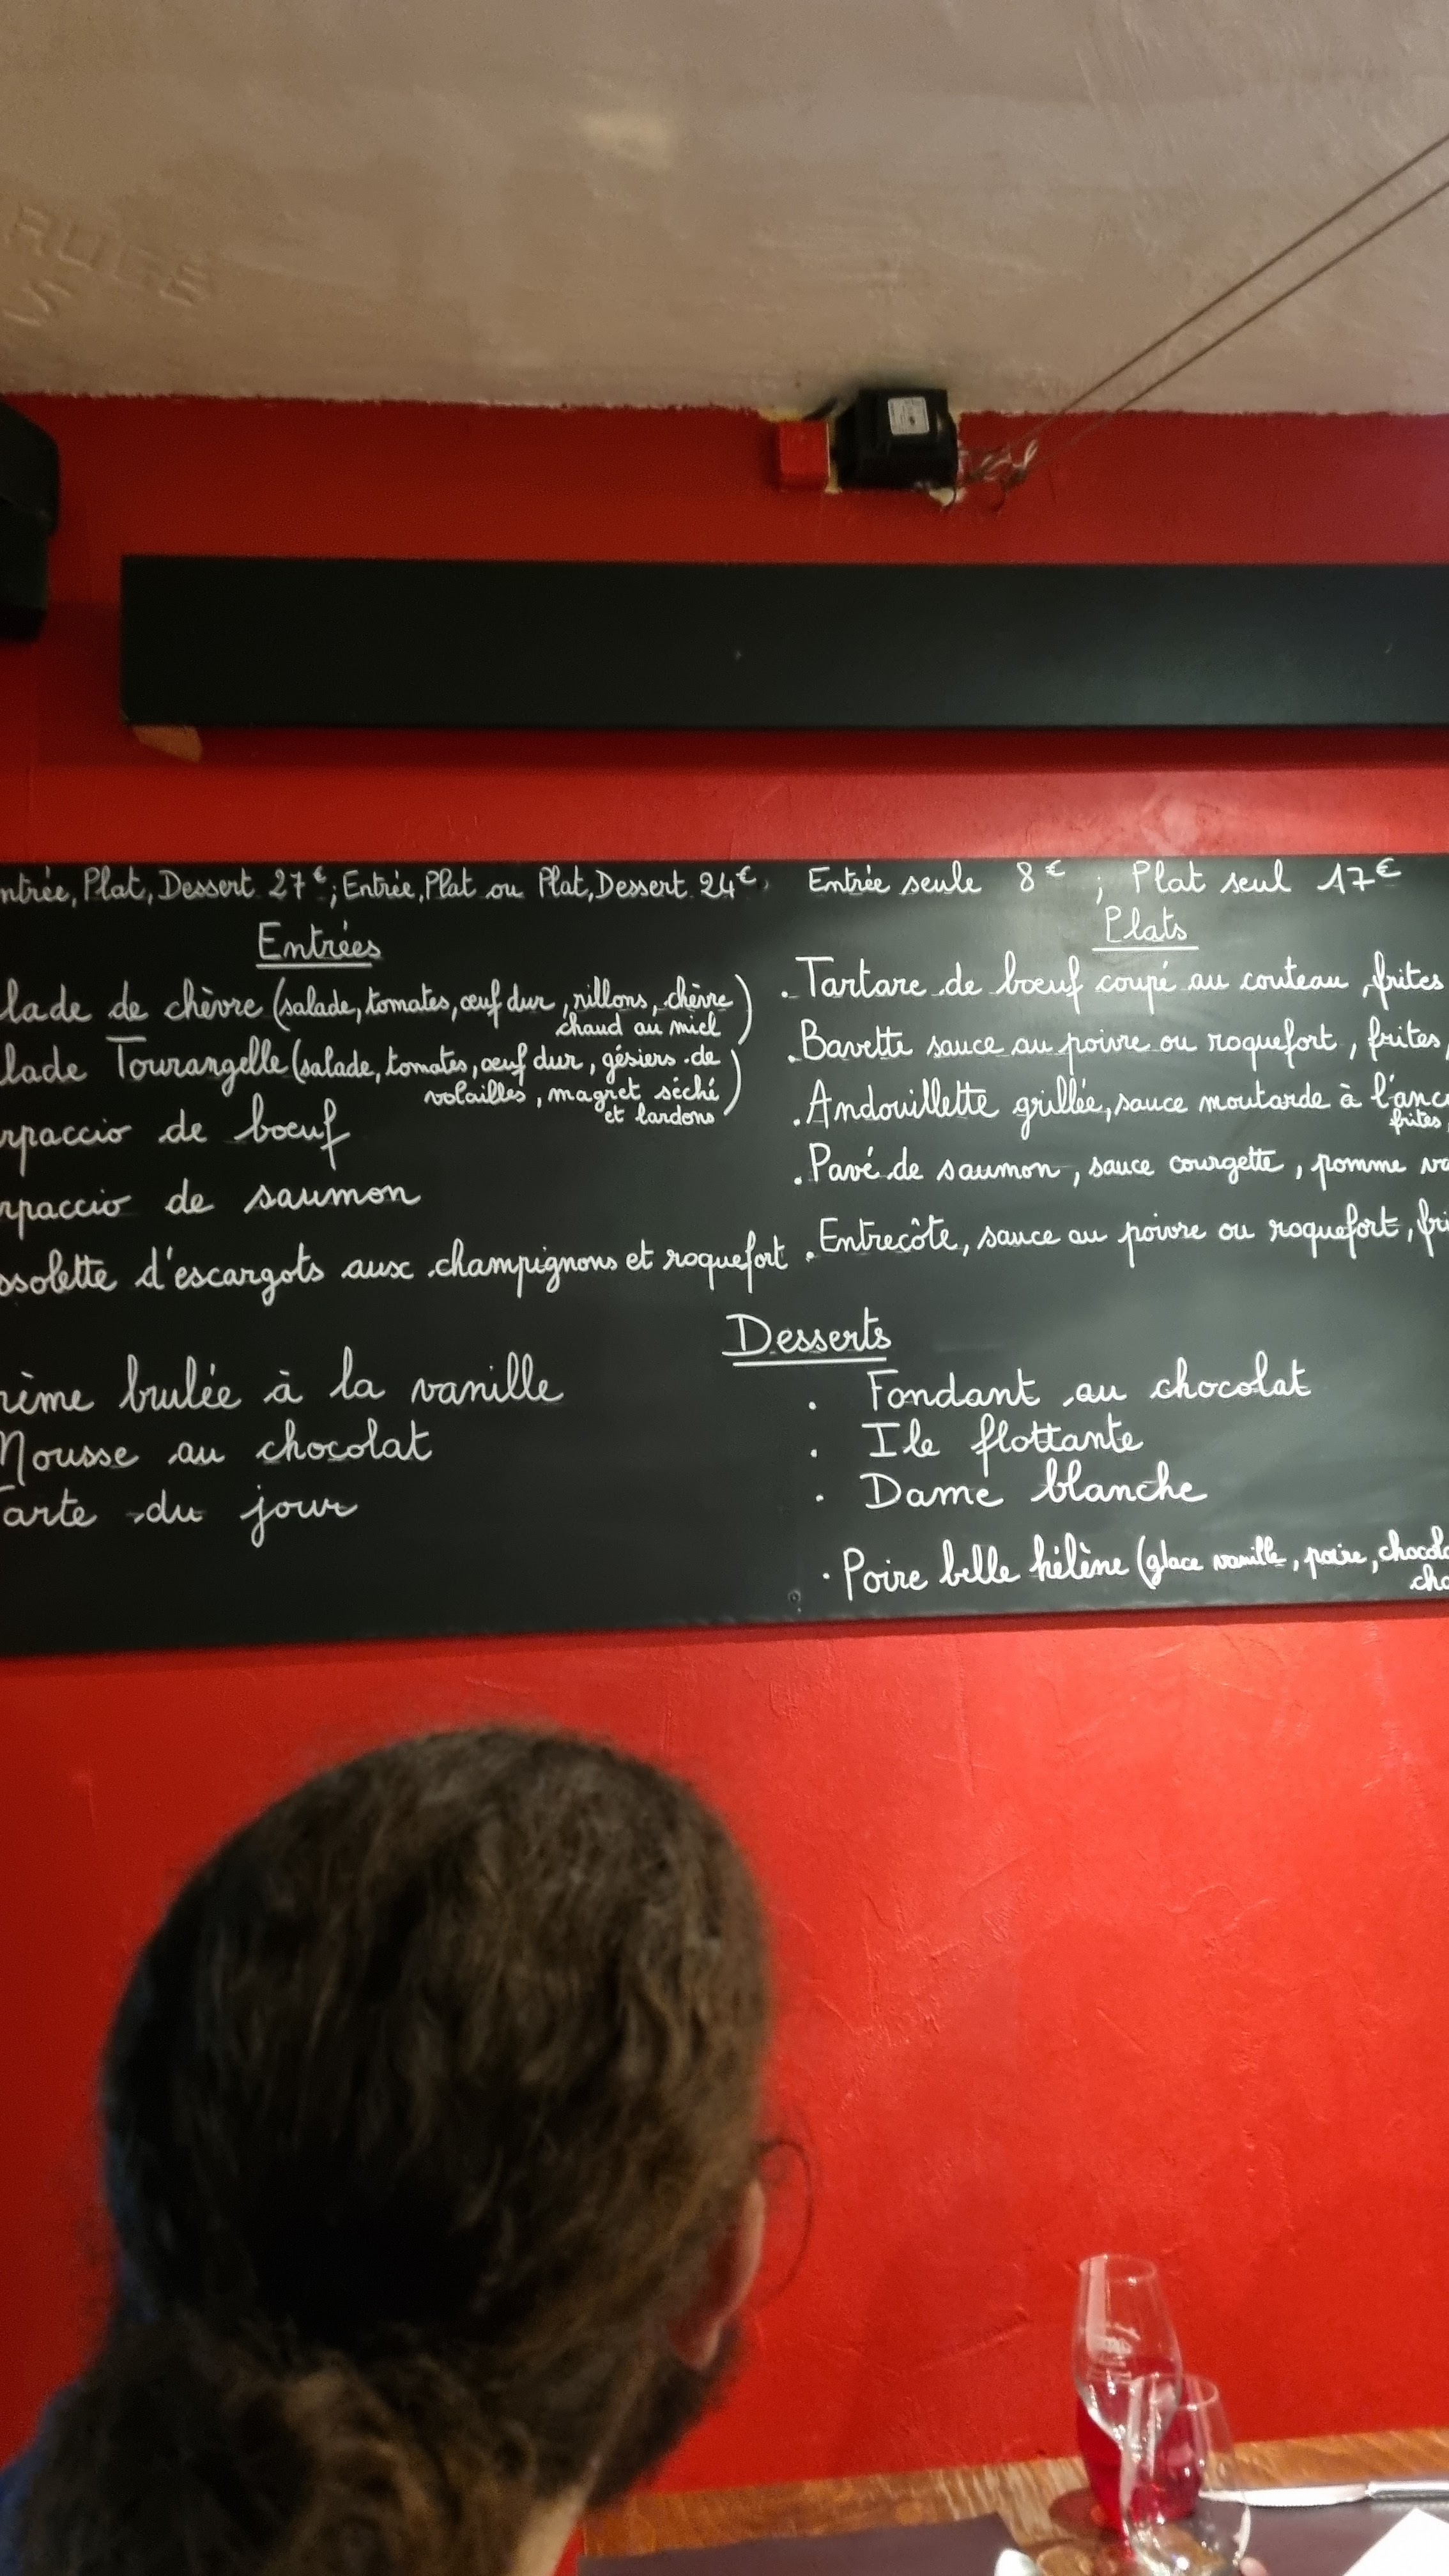 ntrée, Plat, Dessert 27€; Entrée, Plat ou Plat, Dessert 24€. Entrée seule 8€ ; Plat seul 17€
Entrées
lade de chèvre (salade, tomates, œuf dur, rillons, chèvre
chaud au miel)
lade Tourangelle (salade, tomates, œuf dur, gésiers de
volailles, magret séché
et lardons)
rpaccio de bœuf
rpaccio de saumon
ssolette d'escargots aux champignons et roquefort
Plats
. Tartare de bœuf coupé au couteau, frites
. Bavette sauce au poivre ou roquefort, frites,
. Andouillette grillée, sauce moutarde à l'anc
frites,
. Pavé de saumon, sauce courgette, pomme va
. Entrecôte, sauce au poivre ou roquefort, fri
Desserts
rème brulée à la vanille
Mousse au chocolat
arte du jour
. Fondant au chocolat
. Ile flottante
. Dame blanche
. Poire belle hélène (glace vanille, poire, chocola
cha